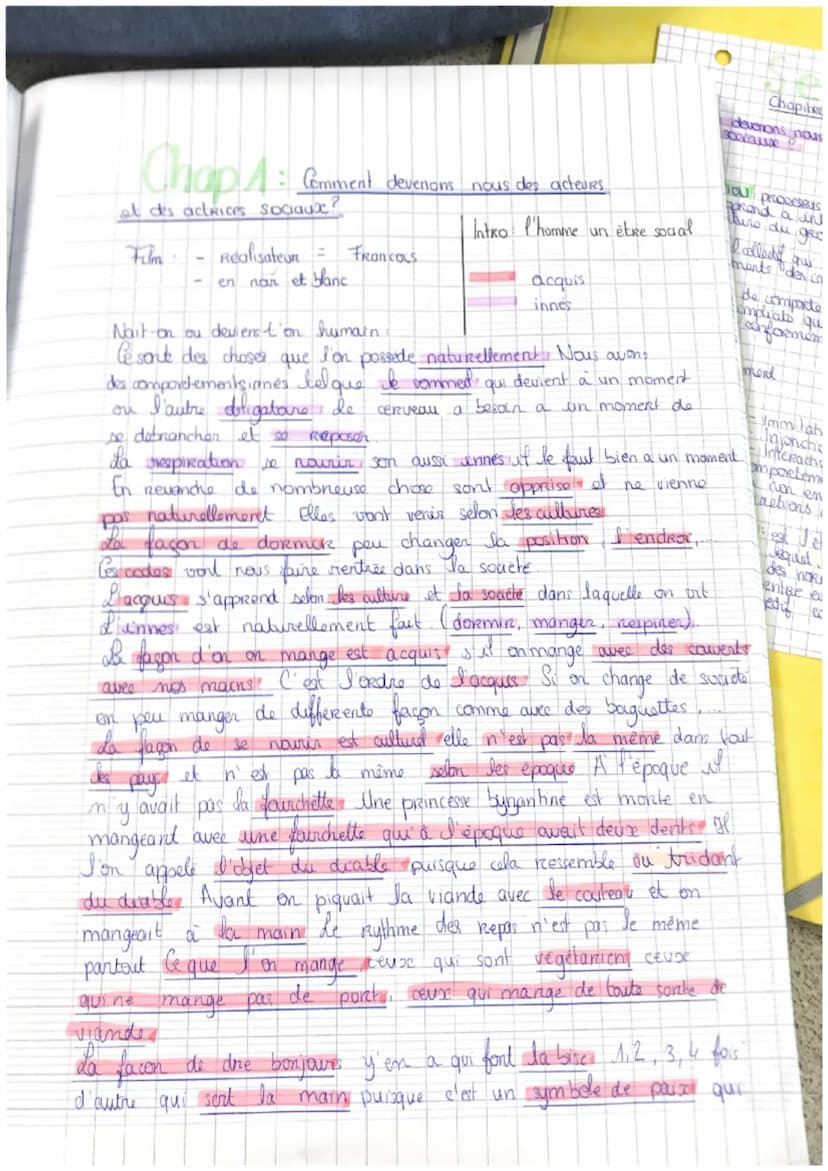 Chap 1 : Comment devenons nous des acteurs
et des actrices sociaux ?
Intro : l'homme un être social
Film : - Réalisateur = Francois
- en noir et blanc
acquis
innés
Nait-on ou deviens t'on humain
Ce sont des choses que l'on possède naturellement. Nous avons
des comportements innés tel que le sommeil qui devient à un moment
ou l'autre obligatoire, le cerveau a besoin a un moment de
se debrancher et se reposer
La respiration se nourir son aussi innés il le faut bien a un moment
En revanche de nombreuse chose sont apprise et ne vienne
pas naturellement Elles vont venir selon les cultures
La façon de dormir peu changer la position, l'endroi,....
Ces codes vont nous faire rentrée dans la société.
L'acquis s'apprend selon les culture et la société dans laquelle on vit
L'innés est naturellement fait (dormir, manger, respirer).
La façon d'on on mange est acquis, si on mange avec des couverts
avec nos mains. C'est l'ordre de l'acquis. Si on change de société
on peu manger de différente façon comme avec des baguettes,...
La façon de se nourir est culturel elle n'est pas la même dans tout
les pays et n'est pas la même selon les époque A l'époque il
n'y avait pas la fourchette. Une princesse byzantine est morte en
mangeant avec une fourchette qui à l'époque avait deux dents. Il
l'on appelé l'objet du diable puisque cela ressemble au tridant
du diable. Avant on piquait la viande avec le couteau et on
mangeait à la main Le rythme des repas n'est pas le même
partout Ce que l'on mange, ceux qui sont végétariens ceux
qui ne mange pas de porc, ceux qui mange de toute sorte de
viande.
La facon de dire bonjours y'en a qui font la bise 1, 2, 3, 4 fois
d'autre qui sert la main puisque c'est un symbole de paix qui
Se
Chapitre
devenons nous
sociaux ?
processus
prend a
collectif qui
ments des
de comporte
implicite qu
conformém
ment
Immitat
Injoncti
Interacti
mportem
non en
actions
est
lequel
des nor